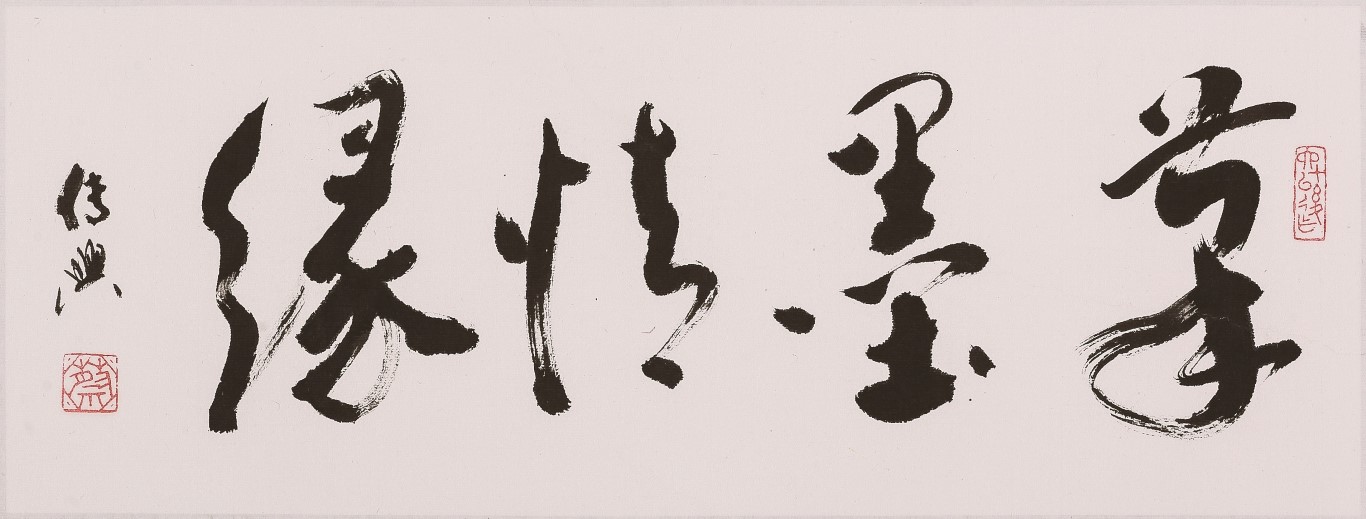 筆墨情緣
傳興
蔡